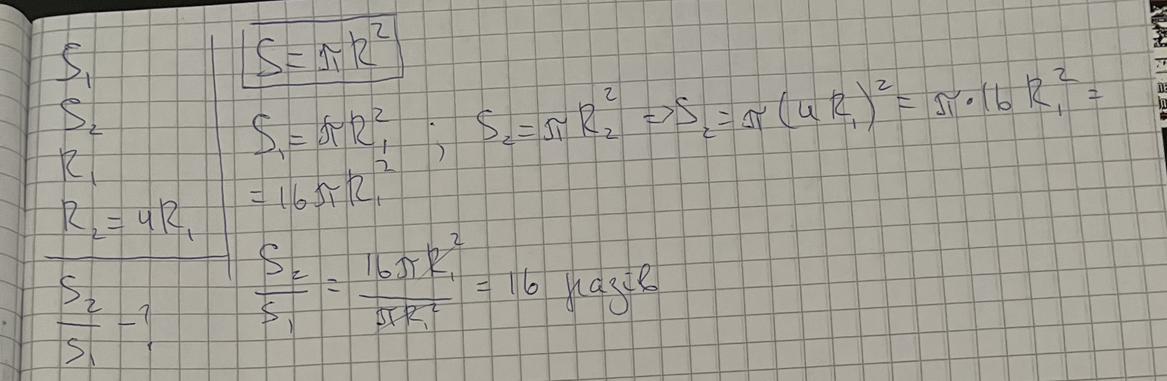 S₁
S₂
R₁
R₂ = 4R₁
S₂/S₁ - ?
S = πR²
S₁ = πR₁² ; S₂ = πR₂² => S₂ = π(4R₁)² = π·16R₁² =
= 16πR₁²
S₂/S₁ = 16πR₁²/πR₁² = 16 разів